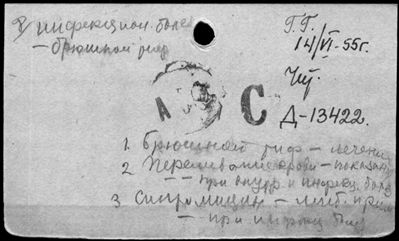 инфекцион. бол
— брюшной тиф
Г.Г.
14/VI-55г.
А
С
Д-13422.
1. Брюшной тиф — лечение
2. Переливание крови — показания
— при внутр и инфекц. бол
3. Синтомицин — леч. прим
— при инфекц бол